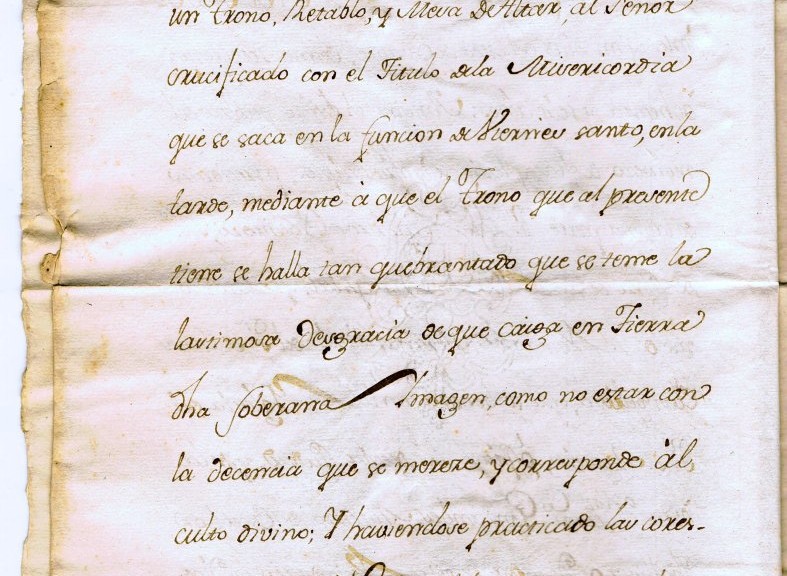 un Trono, Retablo, y Mesa de Altar, al Señor
crucificado con el Titulo dela Misericordia
que se saca en la funcion de Viernes santo, en la
tarde, mediante à que el Trono que al presente
tiene se halla tan quebrantado que se teme la
lastimosa desgracia de que caiga en Tierra
dha soberana Ymagen, como no estar con
la decencia que se mereze, y corresponde àl
culto divino; Y haviendose practicado las cores-